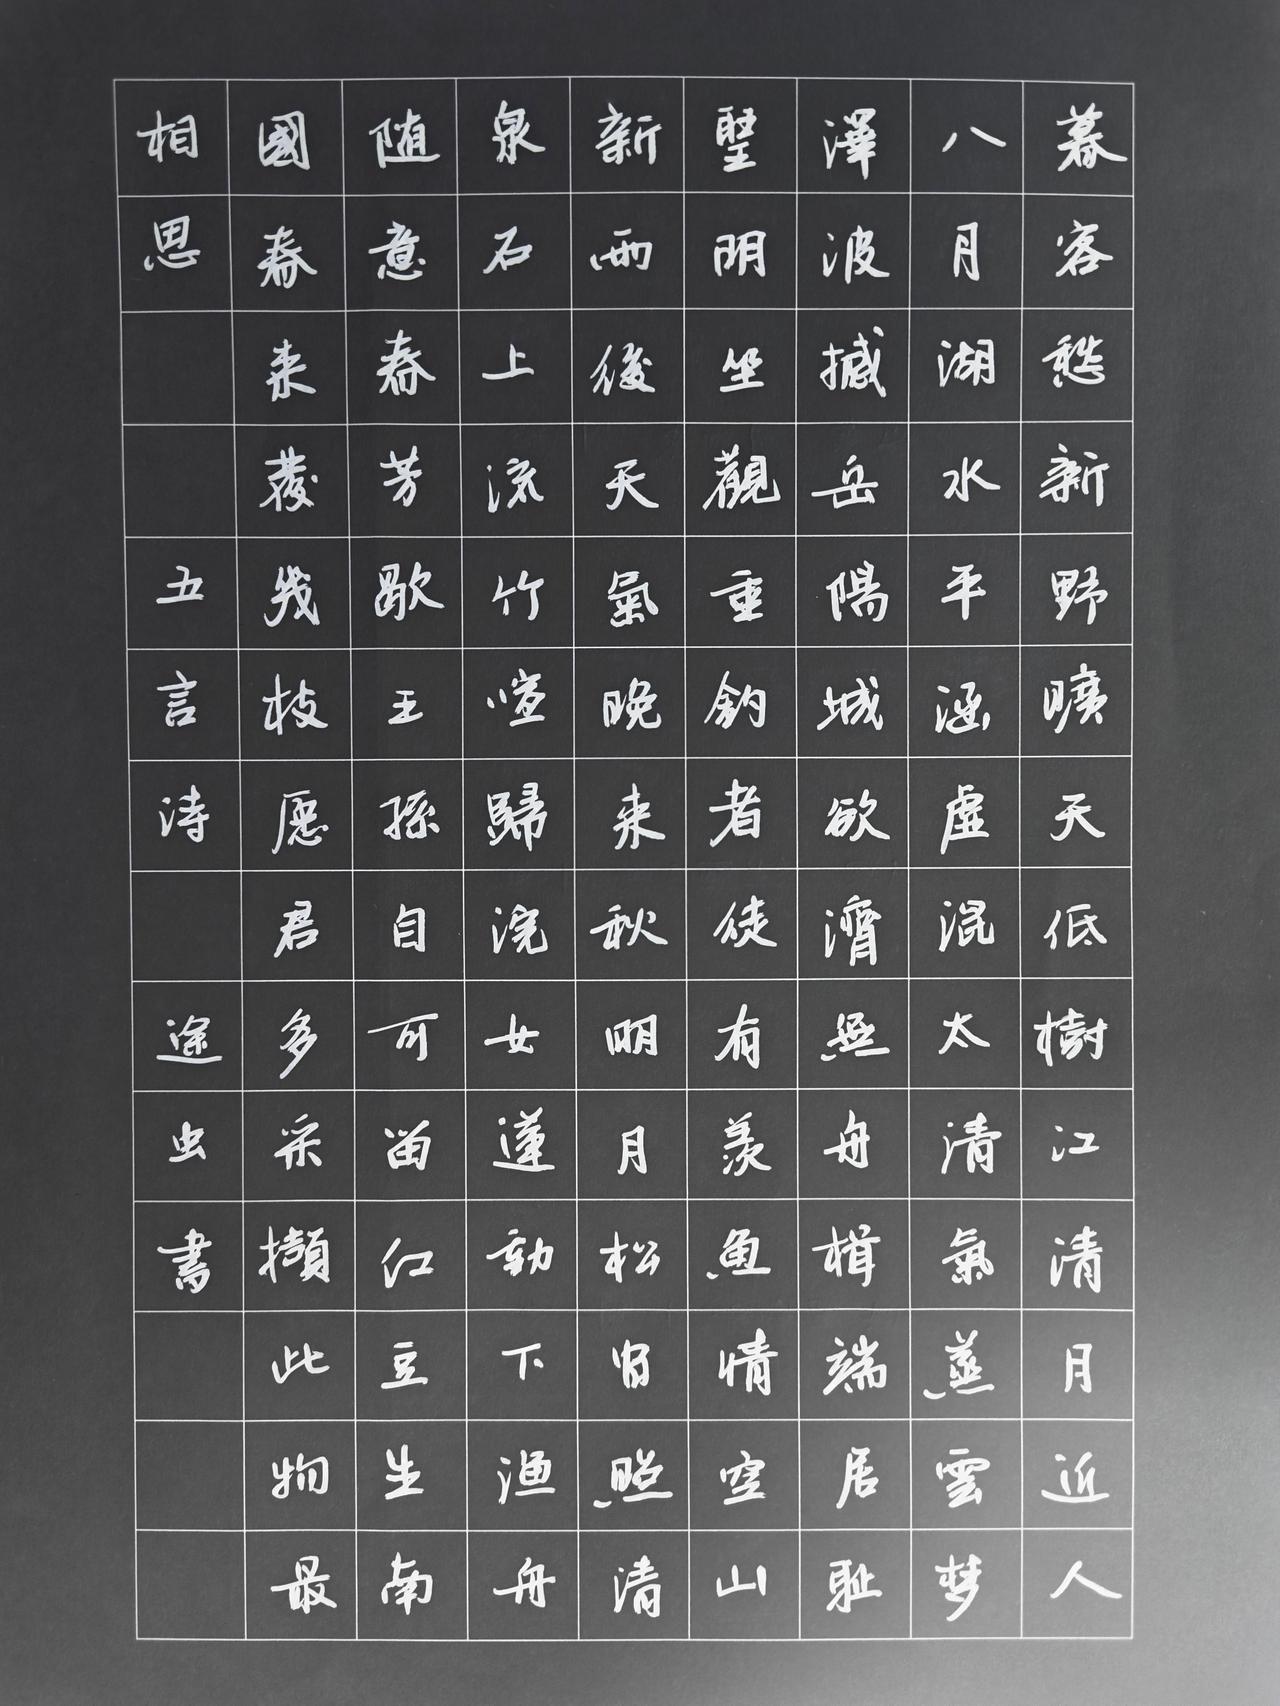 暮客愁新野曠天低樹江清月近人
八月湖水平涵虛混太清氣蒸雲梦
澤波撼岳陽城欲濟無舟楫端居耻
聖明坐觀垂釣者徒有羨魚情空山
新雨後天氣晚来秋明月松間照清
泉石上流竹喧歸浣女蓮動下渔舟
随意春芳歇王孫自可留红豆生南
國春来發幾枝愿君多采擷此物最
相思 五言诗 途虫書